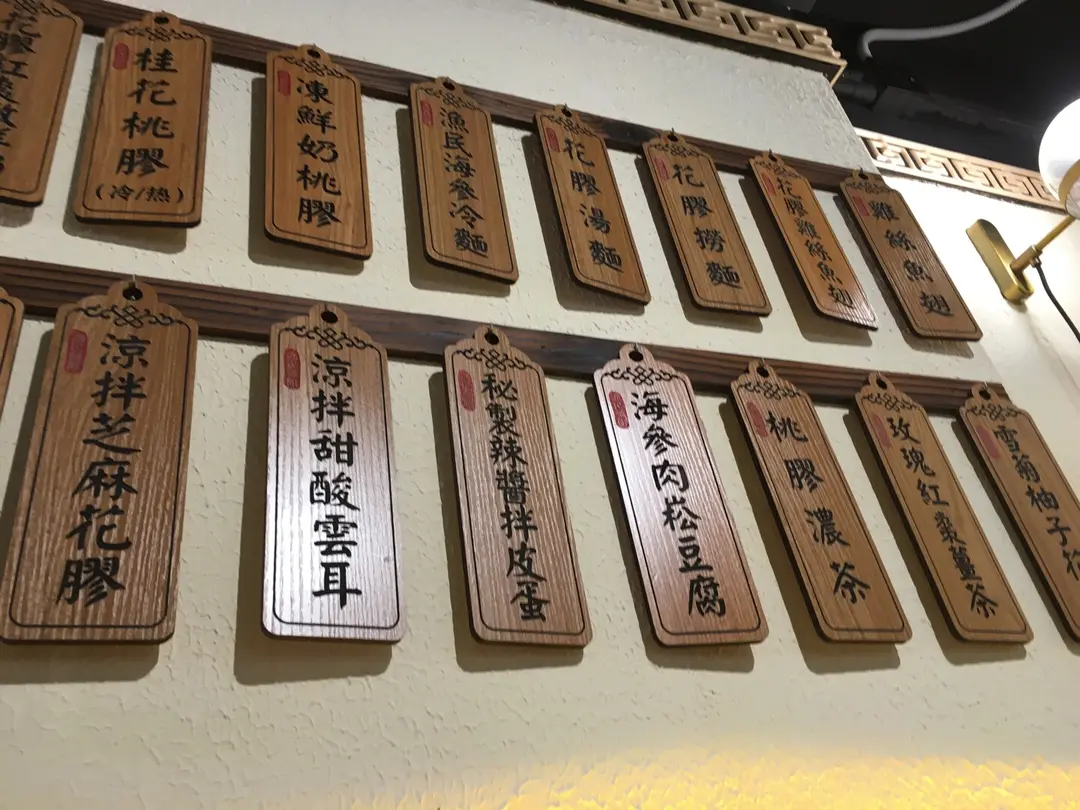 花膠紅
桂花桃膠
(冷/热)
凍鮮奶桃膠
漁民海參冷麵
花膠湯麵
花膠撈麵
花膠雞絲魚翅
雞絲魚翅
涼拌芝麻花膠
涼拌甜酸雲耳
秘製辣醬拌皮蛋
海參肉崧豆腐
桃膠濃茶
玫瑰紅棗薑茶
雪菊柚子花